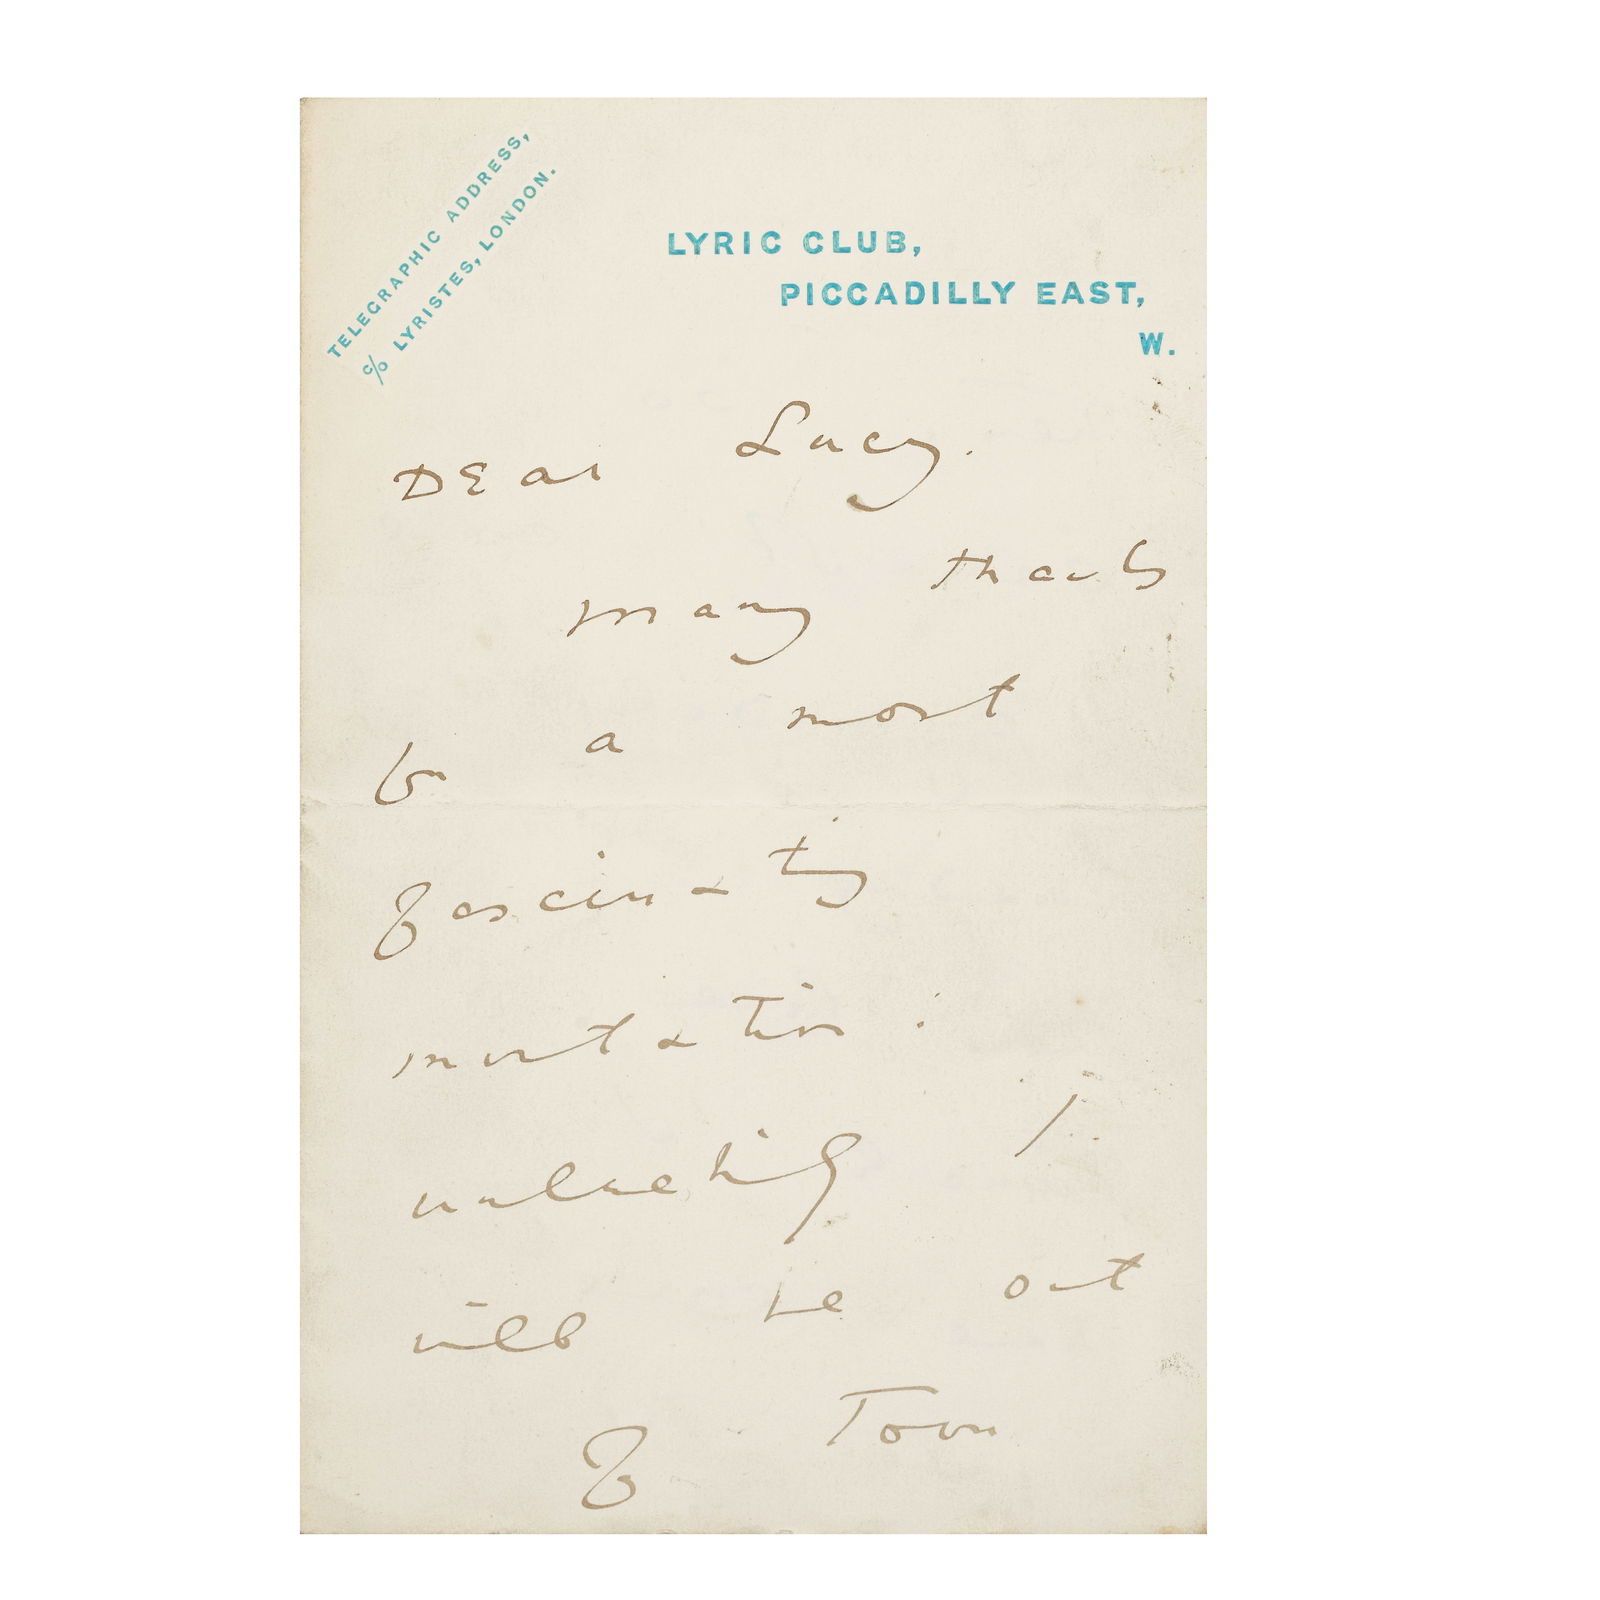 TELEGRAPHIC ADDRESS,
c/o LYRISTES, LONDON.
LYRIC CLUB,
PICCADILLY EAST,
W.
Dear Lucy.
many thanks
for a most
fascinating
invitation:
unluckily I
will be out
of Town